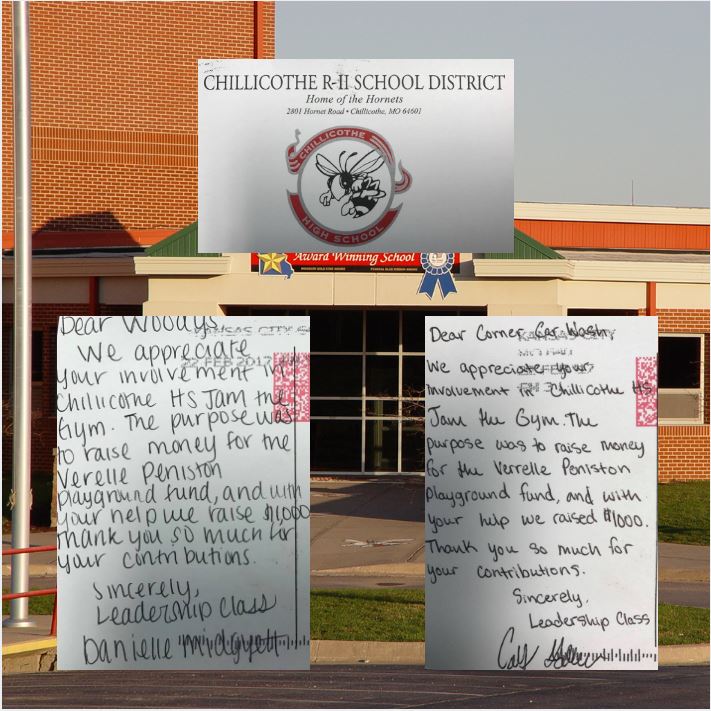 CHILLICOTHE R-II SCHOOL DISTRICT
Home of the Hornets
2801 Hornet Road • Chillicothe, MO 64601
CHILLICOTHE
HIGH SCHOOL
Award Winning School
Dear Woodys
KANSAS CITY
We appreciate
22 FEB 2017
your involvement in
Chillicothe HS Jam the
Gym. The purpose was
to raise money for the
Verelle Peniston
playground fund, and with
your help we raise $1,000
Thank you so much for
your contributions.
Sincerely,
Leadership Class
Danielle Midgyett
Dear Corner Car Wash,
KANSAS CITY
We appreciate your
involvement in Chillicothe HS
Jam the Gym. The
purpose was to raise money
for the Verrelle Peniston
playground fund, and with
your help we raised $1000.
Thank you so much for
your contributions.
Sincerely,
Leadership Class